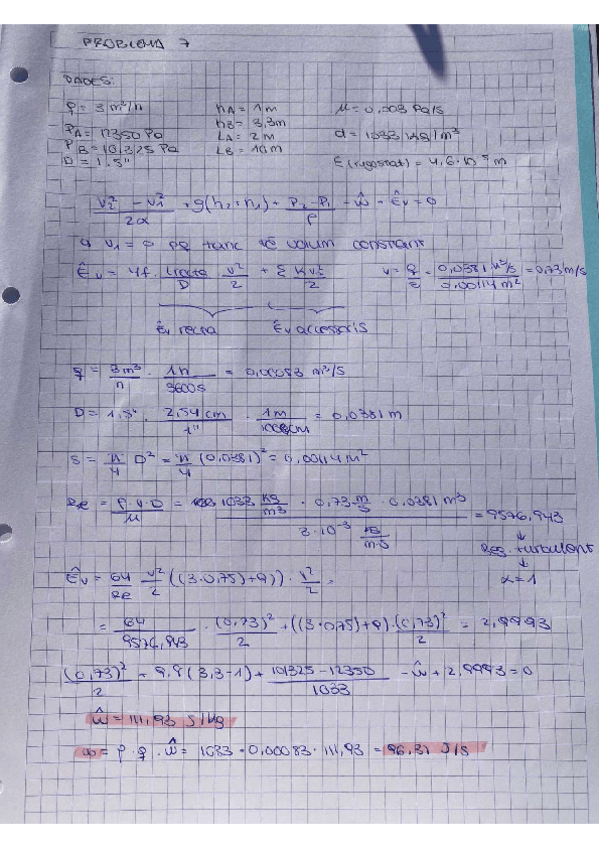 PROBLEMA 7
DADES:
q = 3 m³/h   hA = 1m   μ = 0,003 Pa/s
PA = 12350 Pa   hB = 3,3m   d = 1033 kg/m³
PB = 101325 Pa   LA = 2m   ε (rugositat) = 4,6·10⁻⁵ m
D = 1.5"   LB = 10m
(v₂² - v₁²)/2α + g(h₂-h₁) + (P₂-P₁)/ρ - ŵ - Êv = 0
v₁ = 0 pq tinc volum constant
Êv = 4f · Lrecta/D · v²/2 + Σ kv²/2   v = q/S = 0,0381 m³/s / 0.00114 m² = 0,73 m/s
Êv recta   Êv accessoris
q = 3m³/h · 1h/3600s = 0,00083 m³/s
D = 1,5" · 2,54 cm/1" · 1m/100cm = 0,0381 m
S = π/4 D² = π/4 (0,0381)² = 0,00114 m²
Re = ρ·v·D/μ = 1033 kg/m³ · 0,73 m/s · 0,0381 m³ / 3·10⁻³ kg/m·s = 9576,943
Reg. turbulent
α = 1
Êv = 64/Re v²/2 ((3·0,75)+9)) · v²/2 =
= 64/9576,943 · (0,73)²/2 + ((3·0,75)+9)·(0,73)²/2 = 2,9993
(0,73)²/2 - 9,8(3,3-1) + (101325-12350)/1033 - ŵ + 2,9993 = 0
ŵ = 111,93 J/kg
w = ρ·q·ŵ = 1033 · 0,00083 · 111,93 = 96,31 J/s